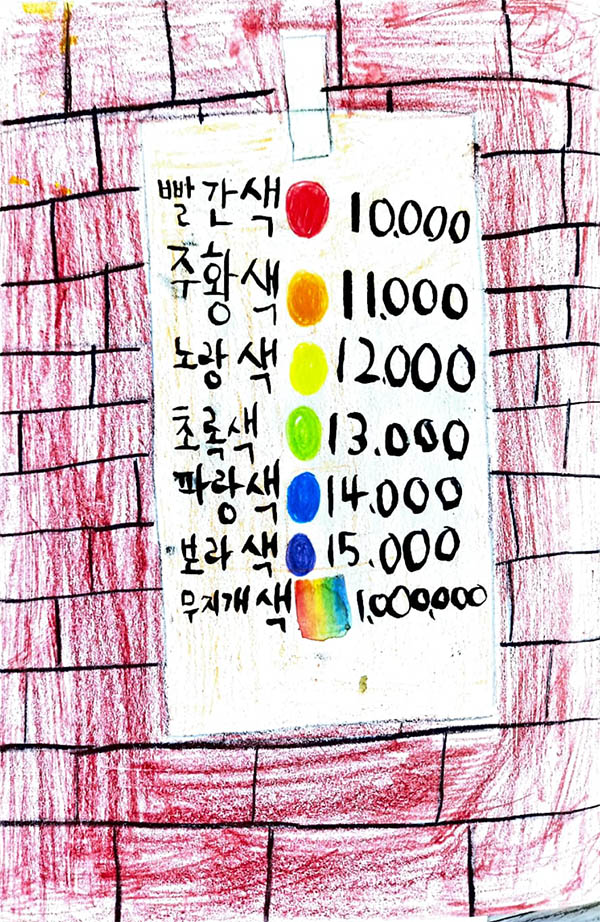 빨간색 10.000
주황색 11.000
노랑색 12.000
초록색 13.000
파랑색 14.000
보라색 15.000
무지개색 1,000,000